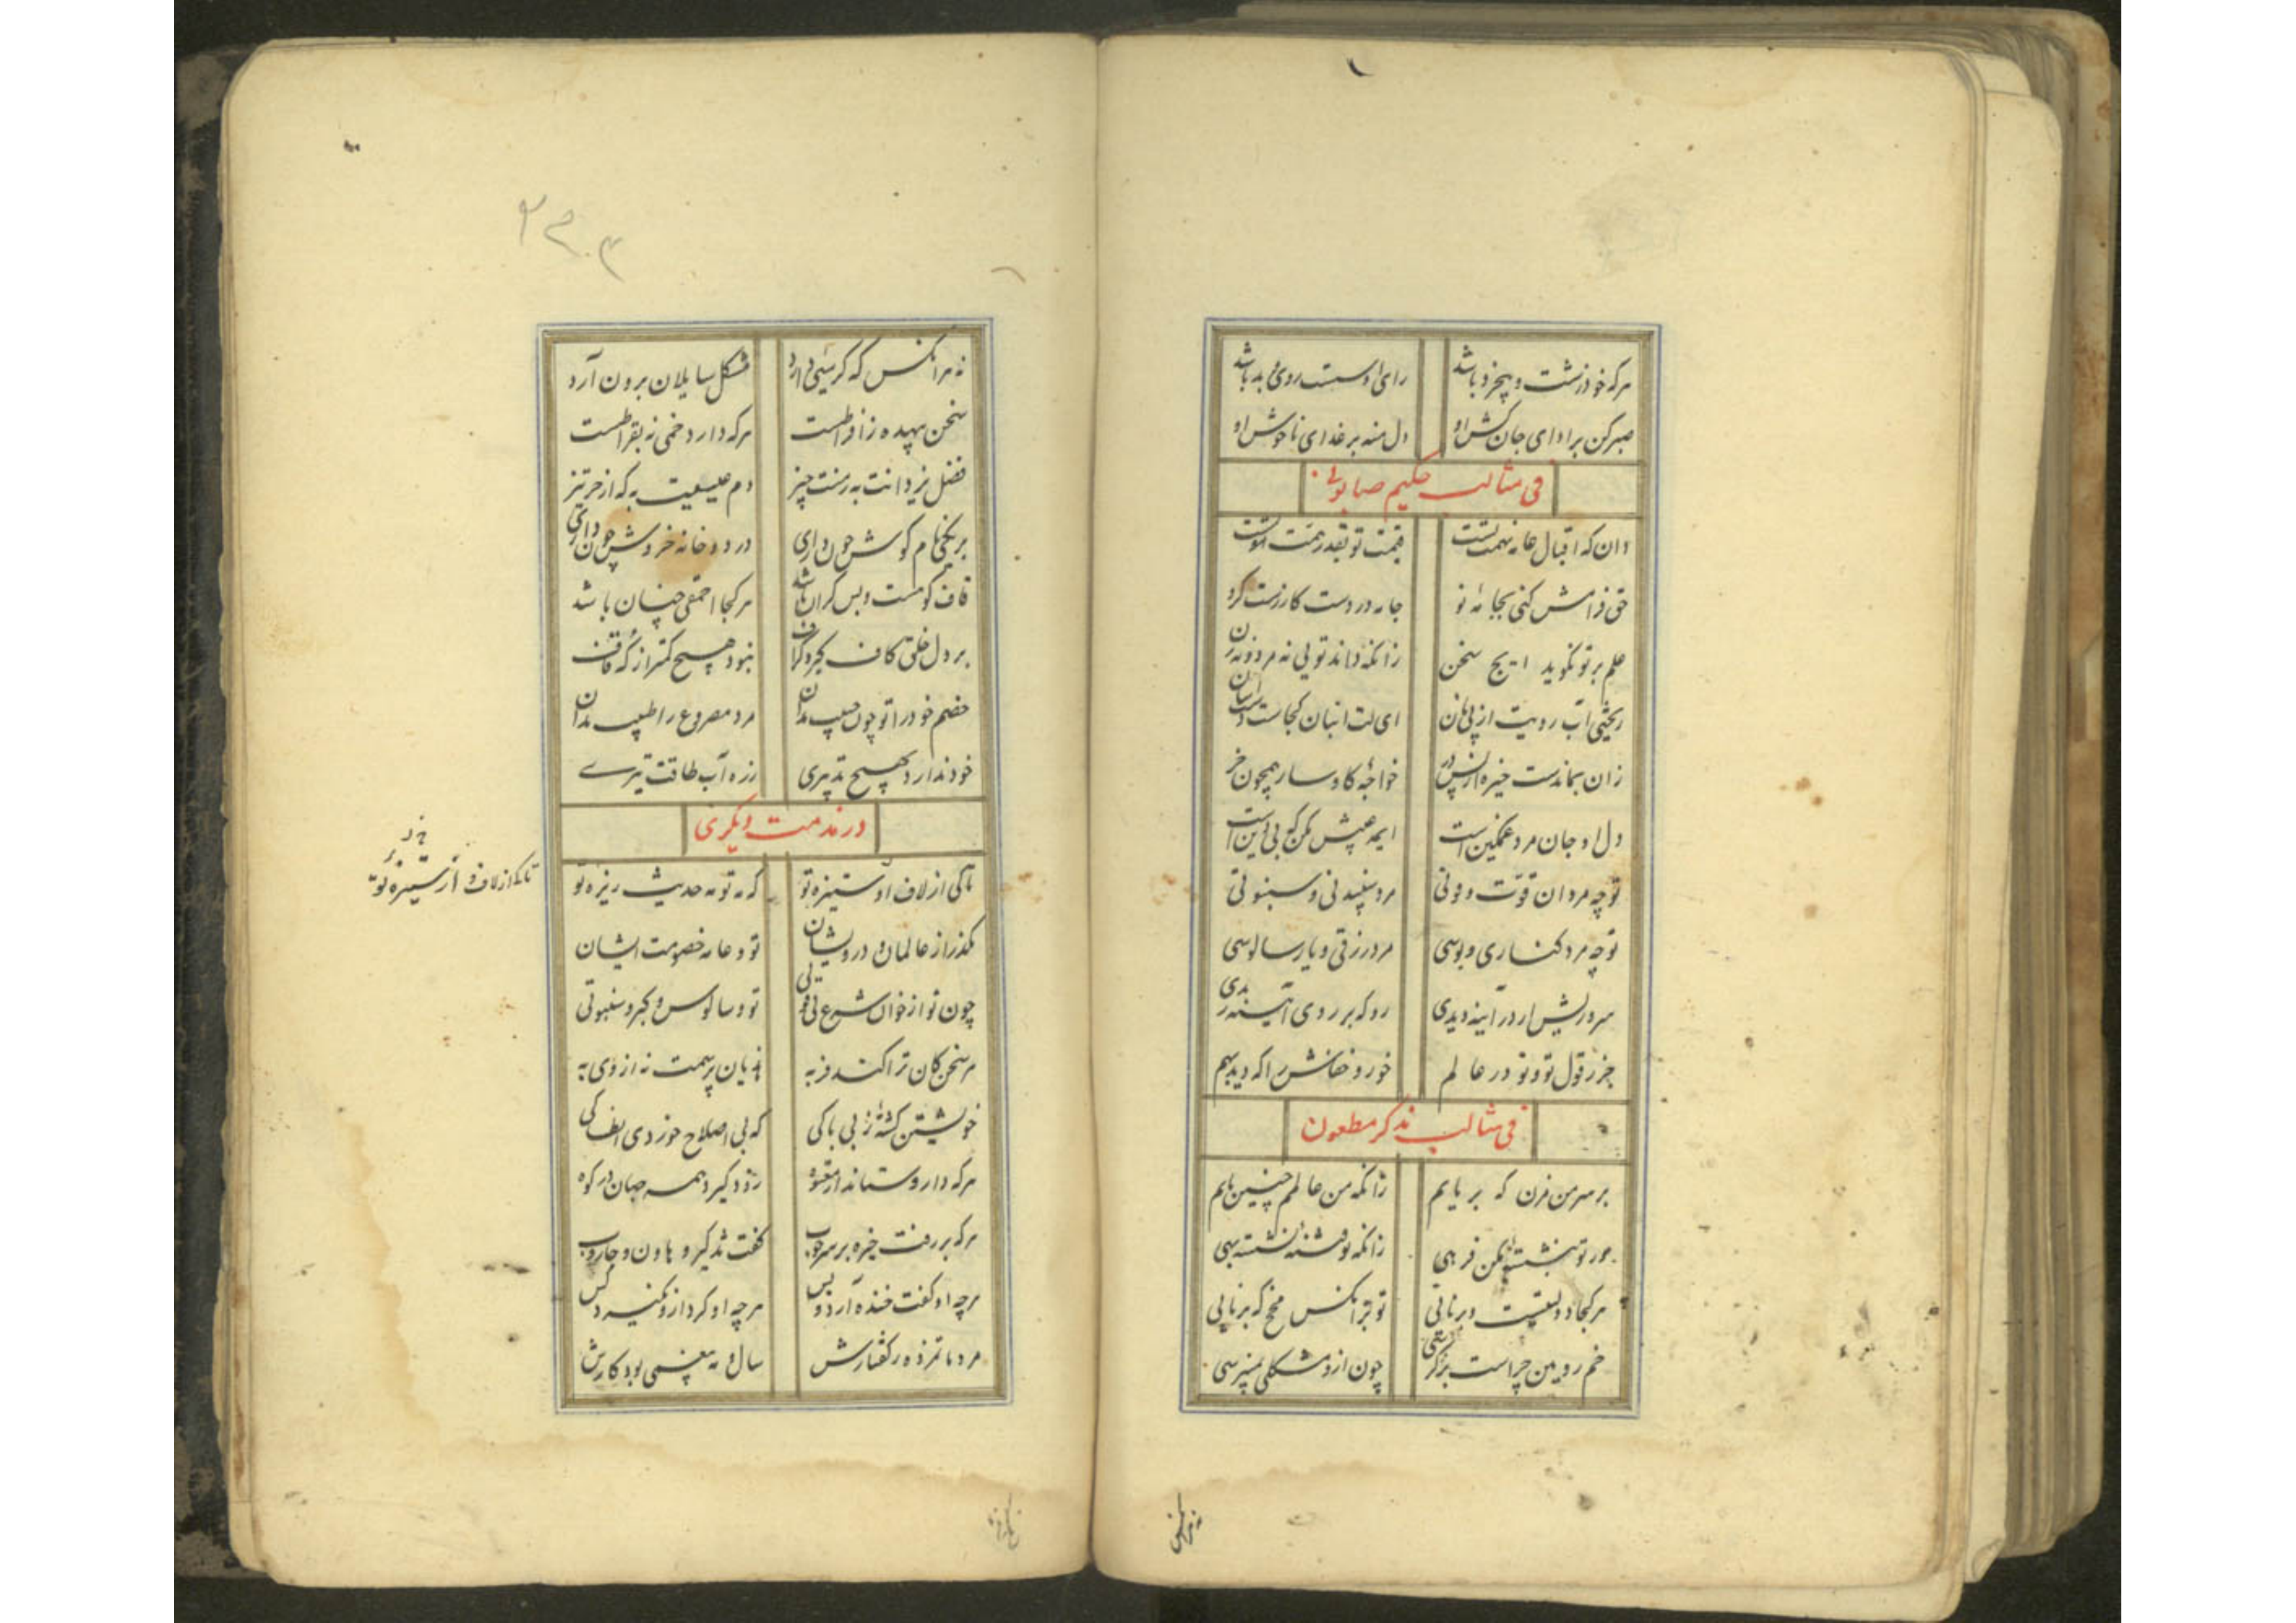 هرکه خود زشت و بیخرد باشد رای او سست روی بد باشد
صبر کن بر ادای جان کش او دل منه بر غدای ناخوش او
فی مثالب حکیم صابونی
دان که اقبال عامه نهمت تست قیمت تو بقدر همت تست
حق فرامش کنی بجامهٔ نو جامه در دست کازرست کرو
علم بر تو نکوید ایچ سخن زانکه داند تویی نه مرد و نه زن
ریختی آب رویت از پی نان ای لت انبان کجاست
زان بماندست خیره از پس در خواجهٔ کاوسار همچون خر
دل او جان مرد غمکین است
تو چه مردان قوّت و قوتی مرد سپیدنی و سبنوتی
تو چه مرد کناری و بوسی مرد زرقی و یار سالوسی
سر و ریش ار در آینه دیدی رو که بر روی آینه
جز ز قول تو و تو در عالم خور و خفاش را که دید بهم
فی مثالب مذکر مطعون
بر سر من مزن که بر پایم زانکه من عالمم چنین بایم
ور تو بنشستهٔ مکن فربهی زانکه تو فتنهٔ نشسته بهی
هرکجا دولتیست درنایی تو بتر آنکس مخ که برنایی
خم رویین چراست بر کرسی چون ازو مشکلی نپرسی
نه هر آنکس که کرسیی دارد مشکل سایلان برون آرد
سخن بیهده ز افراطست هرکه دارد خمی نه بقراطست
فضل یزدانت به رشت چیز دم عیسیت به که از خر تیز
بر یخی نام کوش چون داری در دو خانه خروش چون داری
قاف کوهست و بس کران باشد هر کجا احمقی چنان باشد
بر دل خلق کاف کبر و کزاف نبود هیچ کمتر از که قاف
خصم خود را تو چون حبیب مدان مرد مصروع را طبیب مدان
خود ندارد بهیچ تدبیری زره آب طاقت تیری
در مذمت دیکری
تا کی از لاف و از ستیزهٔ تو که نه تو نه حدیث ریزهٔ تو
بکذر از عالمان و درویشان تو و عامه خصومت ایشان
چون تو از خوان شرع بی قوتی تو و سالوس و کبر و سبنوتی
هر سخن کان ترا کند فربه هذیان بر همت نه از وی به
خویشتن کشتهٔ ز بی باکی که بی اصلاح خوردی
هرکه دارو ستاند از معتوه زود کیرد همه جهان در کوه
هرکه بر رفت خیره بر سر چوب کفت تذکیر و هاون و جاروب
هرچه او کفت خنده آرد و بس هرچه او کرد ازو نکیرد کس
مرد با تمزده ر کفتارش سال و مه مغنمی بود کارش
تا کی از لاف و از ستیزهٔ تو